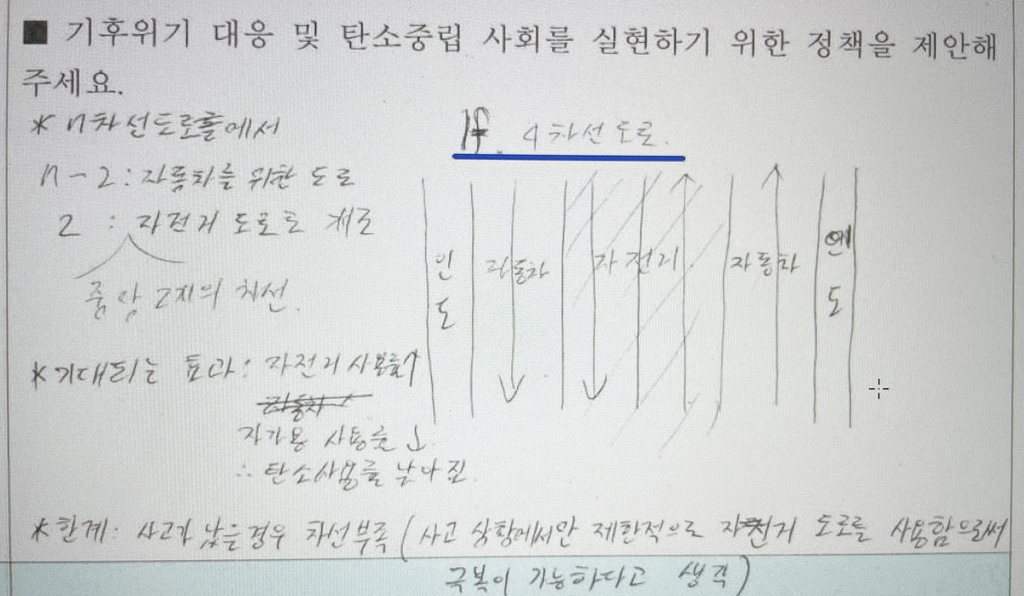 ■ 기후위기 대응 및 탄소중립 사회를 실현하기 위한 정책을 제안해
주세요.
* n차선도로를에서
n-2 : 자동차를 위한 도로
2 : 자전거 도로로 개조
중앙 2개의 차선.
If. 4차선 도로.
인도
자동차
자전거
자동차
인도
*기대되는 효과: 자전거 사용률↑
자가용 사용률↓
∴ 탄소사용률 낮아짐.
*한계: 사고가 났을경우 차선부족 (사고 상황에서만 제한적으로 자전거 도로를 사용함으로써
극복이 가능하다고 생각)